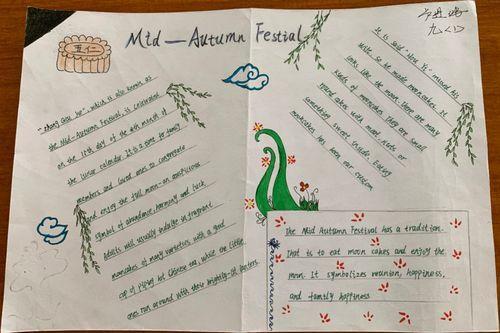 Mid — Autumn Festial
五仁
九(1)
"zhong qiu jie", which is also known as
the Mid-Autumn Festival, is celebrated
on the 15th day of the 8th month of
the lunar calendar. It is a time for family
members and loved ones to congregate
and enjoy the full moon - an auspicious
symbol of abundance, harmony and luck.
Adults will usually indulge in fragrant
mooncakes of many varieties with a good
cup of piping hot Chinese tea, while the little
ones run around with their brightly-lit lanterns.
It is said "Hou Yi" missed his
wife, so he made mooncakes. It
looks like the moon. There are many
kinds of mooncakes. They are small
round cakes with meat, nuts or
something sweet inside. Eating
mooncakes has been our custom
The Mid Autumn Festival has a tradition.
That is to eat moon cakes and enjoy the
moon. It symbolizes reunion, happiness,
and family happiness